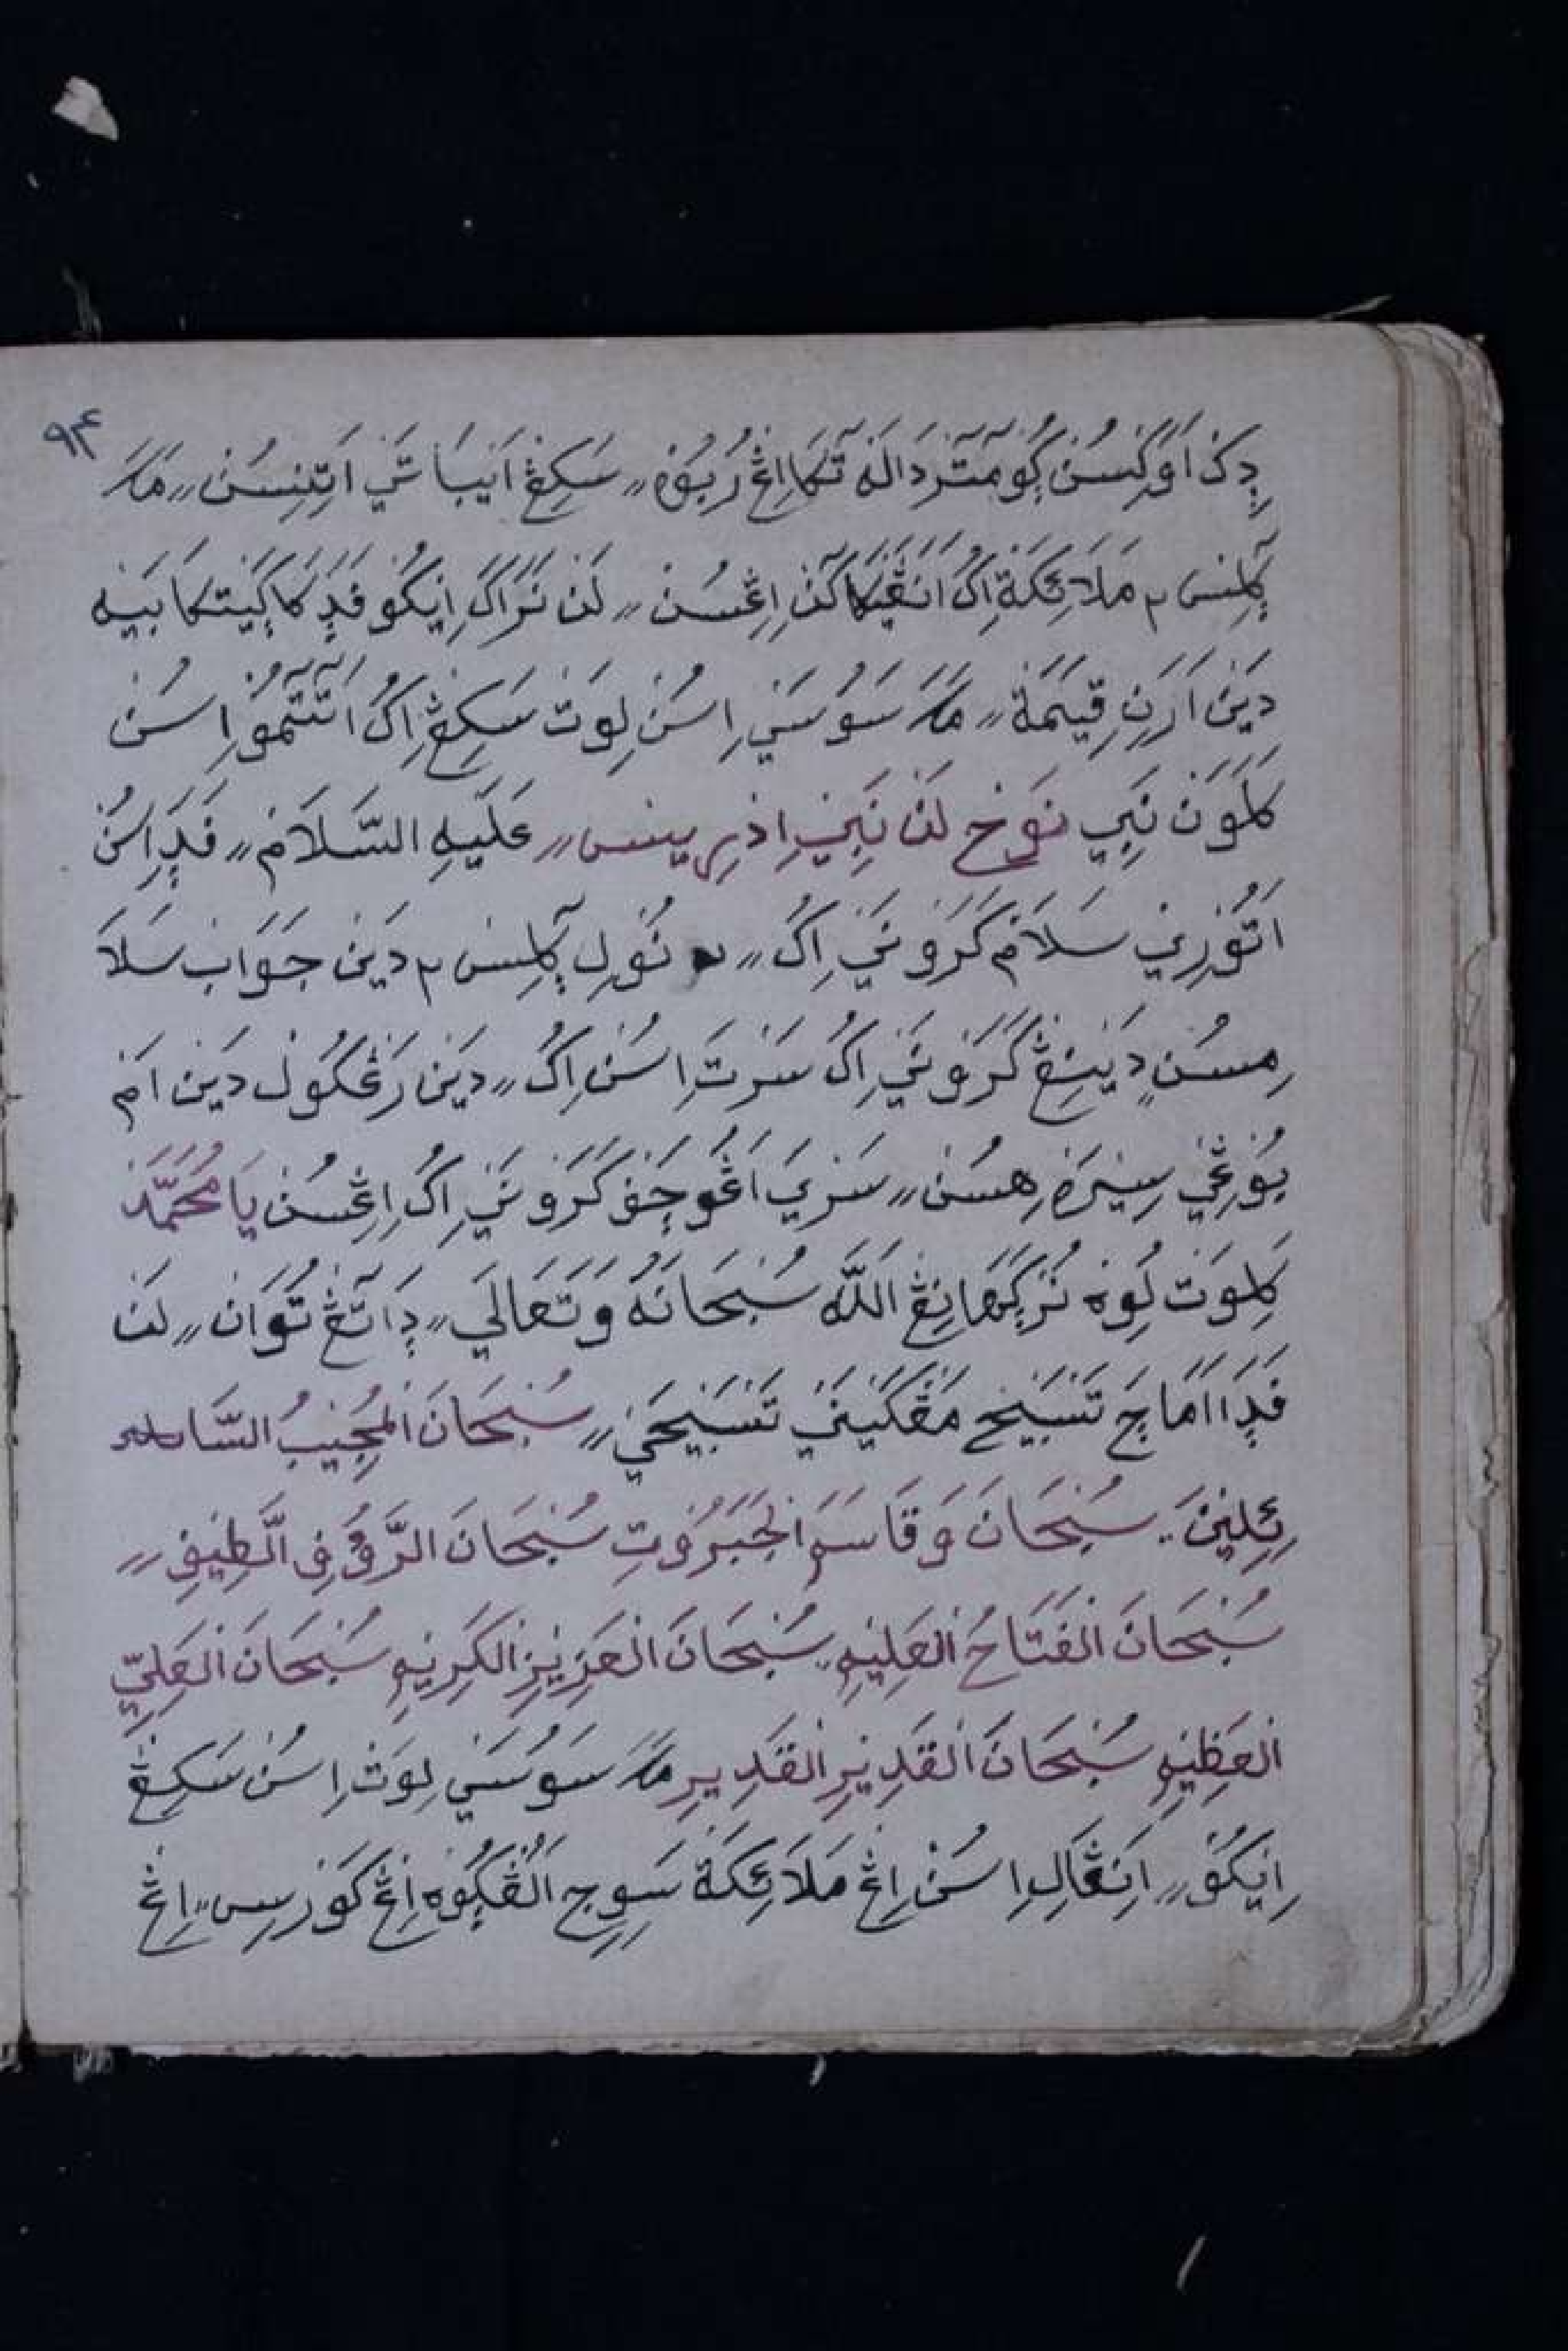 ٩٣
دِكَنْ اَوَكِسُنْ كُوْمَتَرْ دَالَهْ تَكَااِڠْ رُبُوْهْ ,, سَكِڠْ اَنِيْبَا تَنِيْ اَتِنِسُنْ ,, مَكَ
كِلِنْسِ ٢ مَلَائِكَةْ اِكُ اَنْڤَيْكَاكَنْ اِڠْسُنْ ,, لَنْ نَرَاكَ اِيْكُوْ فَدَ كَاكَيْتْ كَابَيْهْ
دَيْنَ اَرَنِ قِيَمَةْ ,, مَكَ سَوُسَنِيْ اِسُنْ لِوَتْ سَكِڠْ اِكُ اَتَتَمُوْ اِسُنْ
كَلَوَنْ نَبِي نَوْحْ لَنْ نَبِيْ اِدْرِيْسْ ,, عَلَيْهِ السَّلَامْ ,, فَدَ اِسُنْ
اَتُوْرِيْ سَلَامْ كَرَوْنَيْ اِكُ ,, نُوْلِ كِلِنْسِ ٢ دَيْنَ جَوَابْ سَلَا
مِسُنْ دَيْنِڠْ كَرَوْنَيْ اِكُ سَرْتَ اِسُنْ اِكُ ,, دَيْنَ رَڠْكُوْلْ دَيْنَ اَمْ
بُوْڠِيْ سِيْرَهْ هِسُنْ ,, سَرْيَ اَڠُوْچَفْ كَرَوْنَيْ اِكُ اِڠْسُنْ يَا مُحَمَّدْ
كَلِوَتْ لُوِهْ نُرْكَرَهَانِڠْ اَللّٰهْ سُبْحَانَهُ وَتَعَالَى ,, دَاتَڠْ تُوَانْ ,, لَنْ
فَدَا اَمَاچَ تَسْبِيْحْ مَڠْكَيْنَيْ تَسْبِيْحَيْ ,, سُبْحَانَ الْمُجِيْبُ السَّا
ئِلِيْنَ .. سُبْحَانَ وَقَاسَمَ الْجَبَرُوْتِ سُبْحَانَ الرَّؤُفِ الَّطِيْفِ ,,
سُبْحَانَ الْفَتَاحُ الْعَلِيْمِ .. سُبْحَانَ الْعَزِيْزِ الْكَرِيْمِ سُبْحَانَ الْعَلِيِّ
الْعَظِيْمِ سُبْحَانَ الْقَدِيْرِ الْقَدِيرِ مَكَ سَوُسَنِيْ لِوَتْ اِسُنْ سَكِڠْ
اِيْكُوْ ,, اَنِڠَالِ اِسُنْ اِڠْ مَلَائِكَةْ سَوِجِ اَلُڠْكُوْهْ اِڠْ كَوْرسِ ,, اِڠْ